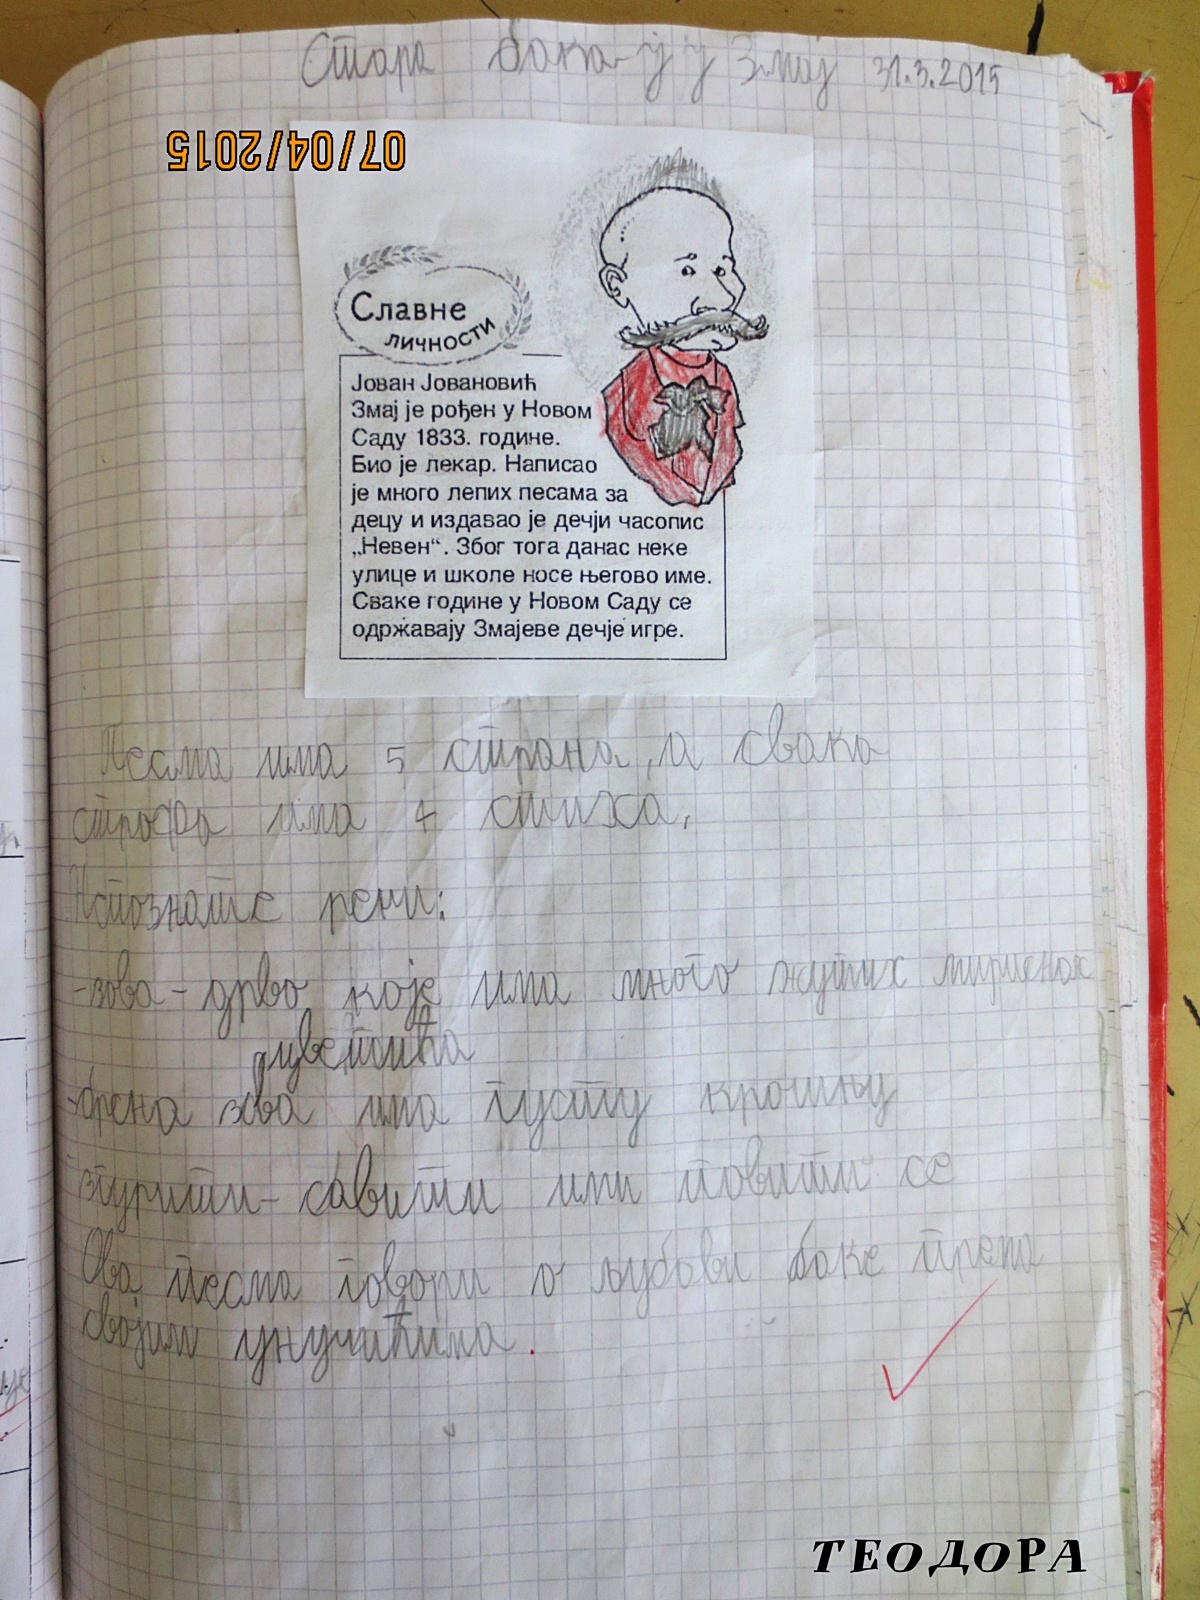 Стара бака Ј Ј Змај 31.3.2015
07/04/2015
Славне
личности
Јован Јовановић
Змај је рођен у Новом
Саду 1833. године.
Био је лекар. Написао
је много лепих песама за
децу и издавао је дечји часопис
„Невен“. Због тога данас неке
улице и школе носе његово име.
Сваке године у Новом Саду се
одржавају Змајеве дечје игре.
Песма има 5 страна, а свака
строфа има 4 стиха,
речи:
-зова-дрво које има много жутих
цветића
зова има густу крошњу
савити или повити се
Ова песма говори о љубави баке према
својим унучићима.
ТЕОДОРА